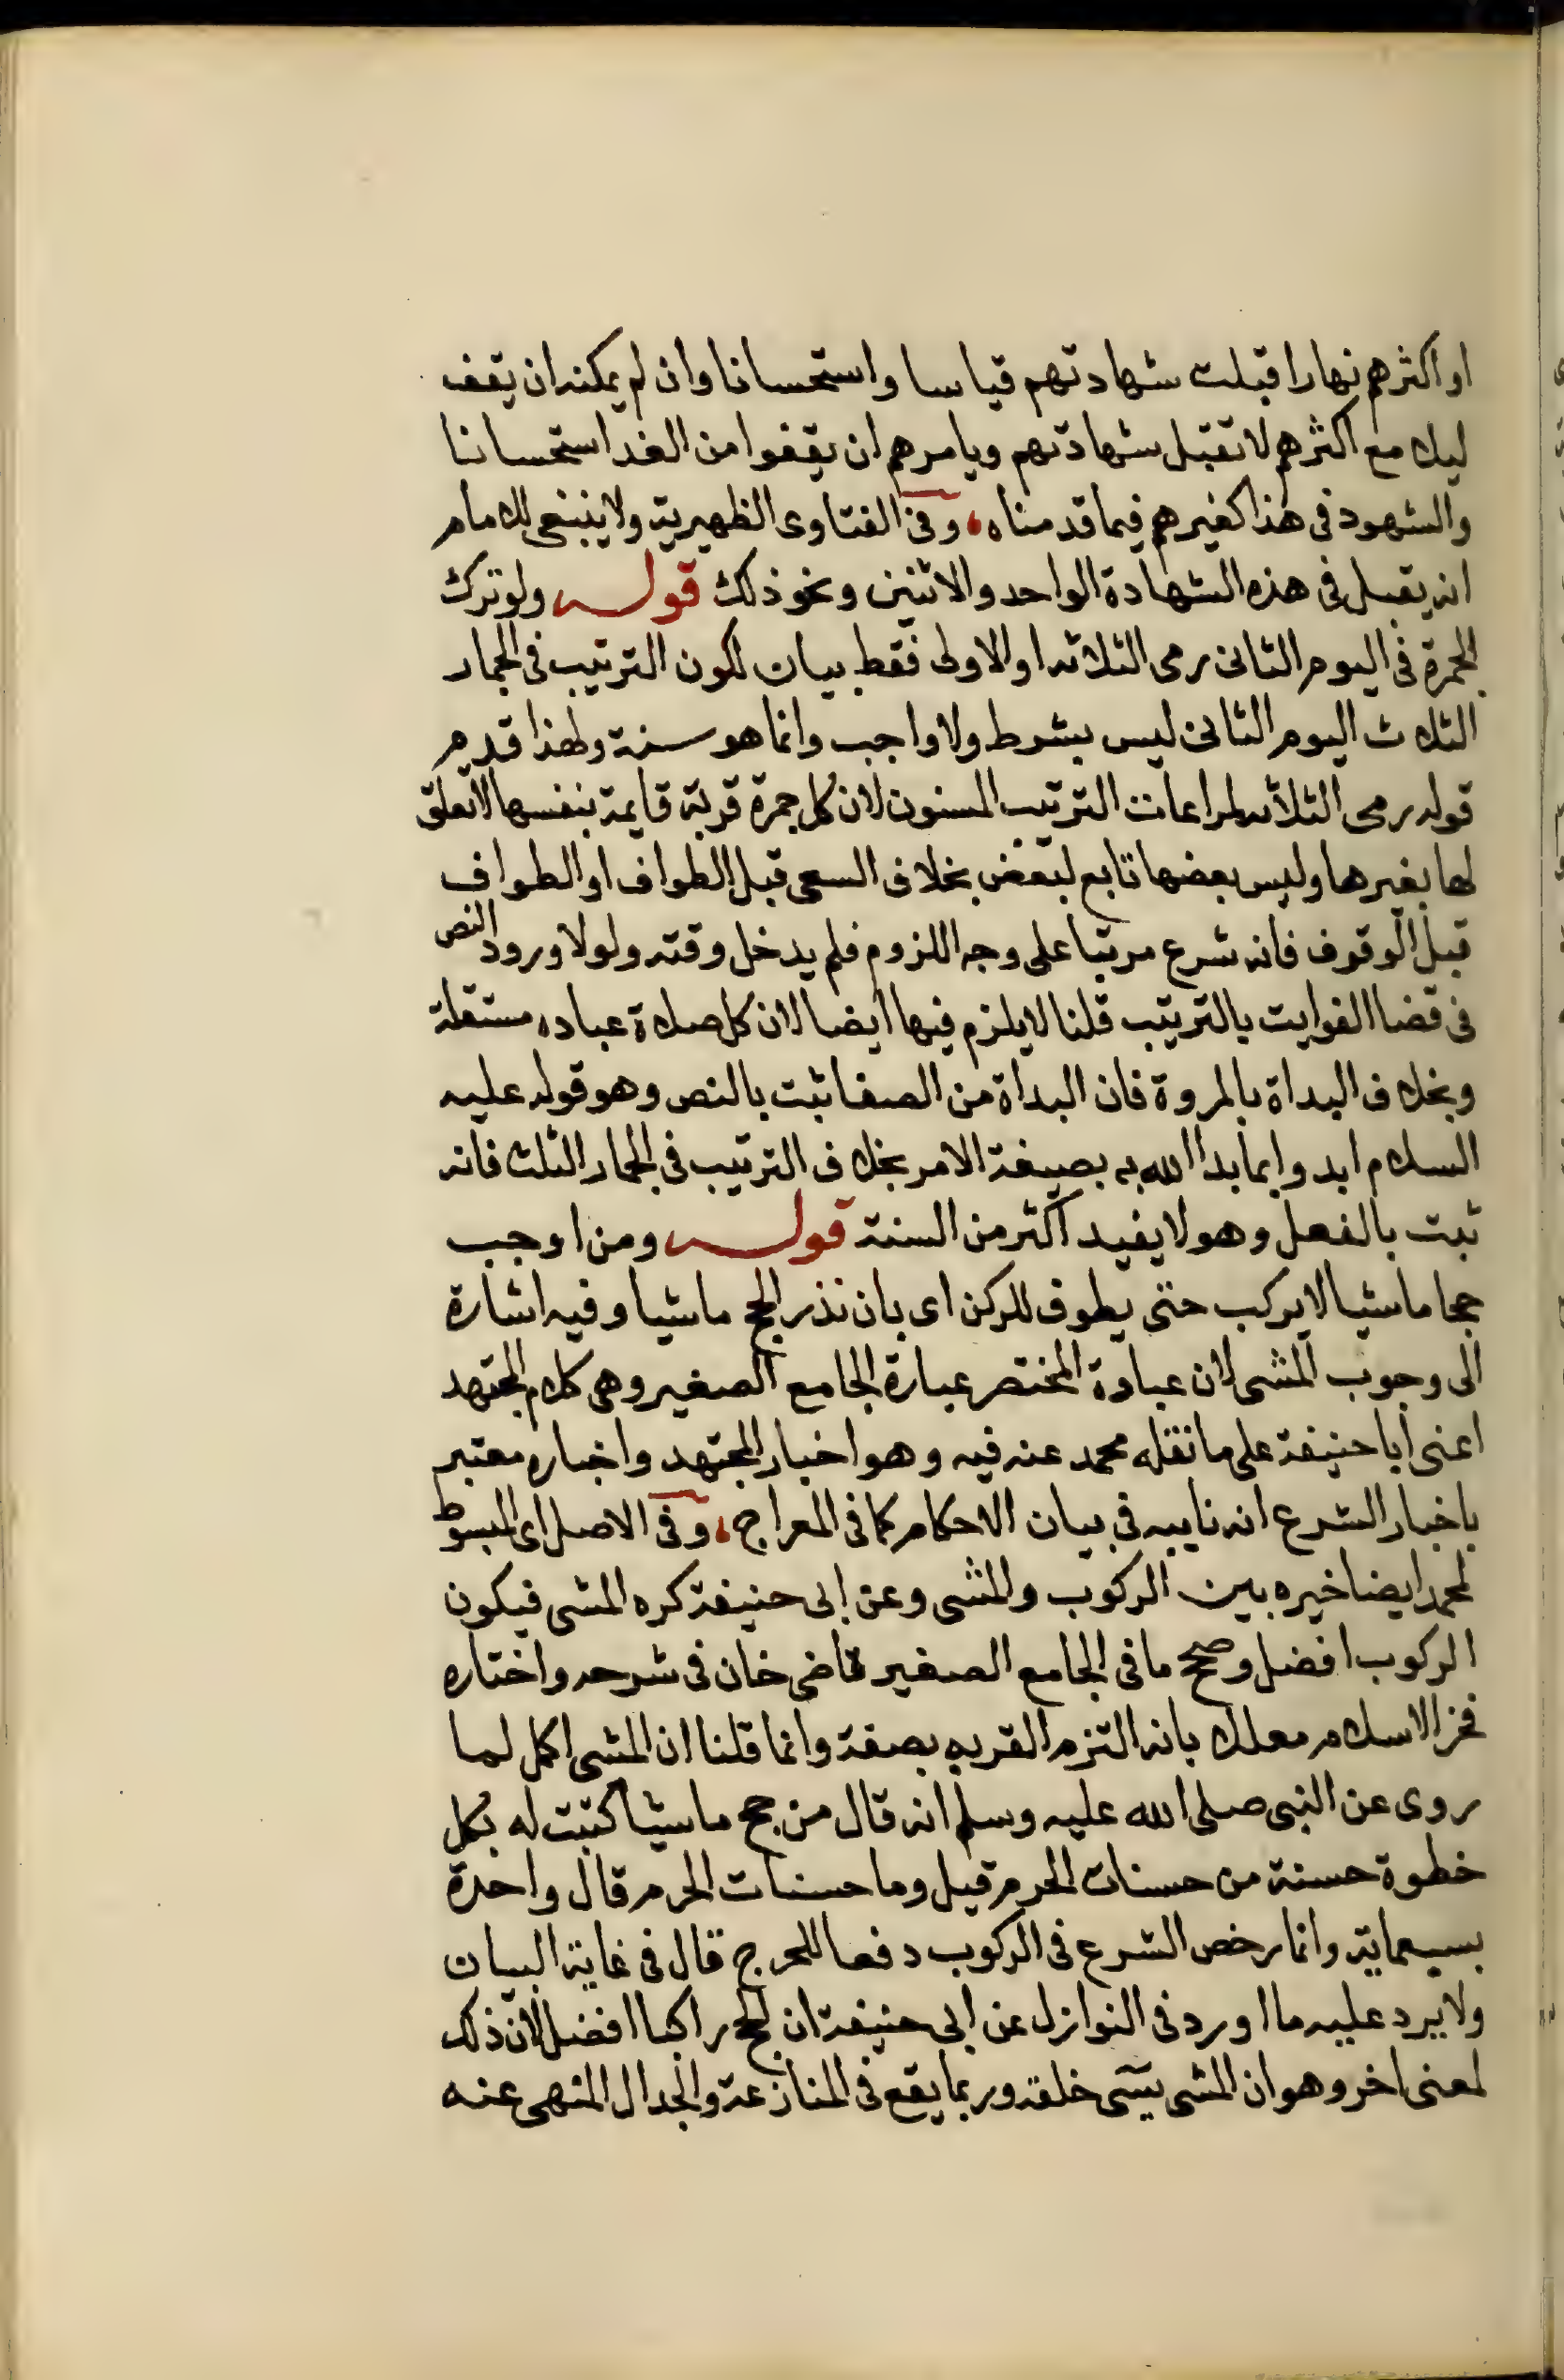 او اكثرهم نهارا قبلت شهادتهم قياسا واستحسانا وان لم يمكنه ان يقف
ليلا مع اكثرهم لا تقبل شهادتهم ويامرهم ان يقفوا من الغد استحسانا
والشهود فى هذا كغيرهم فيما قدمناه، وفى الفتاوى الظهيرية ولا ينبغى للامام
ان يقبل فى هذه الشهادة الواحد والاثنين ونحو ذلك قوله ولو ترك
الجمرة فى اليوم الثانى رمى الثلاثه او الاولى فقط بيان لكون الترتيب فى الجمار
الثلاث اليوم الثانى ليس بشرط ولا واجب وانما هو سنة ولهذا قدم
قوله رمى الثلاثه لمراعات الترتيب المسنون لان كل جمرة قربة قايمة بنفسها لا تعلق
لها بغيرها وليس بعضها تابع لبعض بخلاف السعى قبل الطواف او الطواف
قبل الوقوف فانه شرع مرتبا على وجه اللزوم فلم يدخل وقته ولولا ورود النص
فى قضا الفوايت بالترتيب قلنا لا يلزم فيها ايضا لان كل صلاة عباده مستقلة
وبخلاف البداة بالمروة فان البداة من الصفا ثبت بالنص وهو قوله عليه
السلام ابدوا بما بدا الله به بصيغة الامر بخلاف الترتيب فى الجمار الثلث فانه
ثبت بالفعل وهو لا يفيد اكثر من السنة قوله ومن اوجب
حجا ماشيا لا يركب حتى يطوف للركن اى بان نذر الحج ماشيا وفيه اشارة
الى وجوب المشى لان عبارة المختصر عبارة الجامع الصغير وهى كلام المجتهد
اعنى ابا حنيفة على ما نقله محمد عنه فيه وهو اخبار المجتهد واخباره معتبر
باخبار الشرع انه نايبه فى بيان الاحكام كما فى المعراج، وفى الاصل اى المبسوط
لمحمد ايضا خيره بين الركوب والمشى وعن ابى حنيفة كره المشى فيكون
الركوب افضل وصحح ما فى الجامع الصغير قاضى خان فى شرحه واختاره
فخر الاسلام معللا بانه التزم القربه بصفة وانما قلنا ان المشى اكمل لما
روى عن النبى صلى الله عليه وسلم انه قال من حج ماشيا كتبت له بكل
خطوة حسنة من حسنات الحرم قيل وما حسنات الحرم قال واحدة
بسبعماية وانما رخص الشرع فى الركوب دفعا للحرج قال فى غاية البيان
ولا يرد عليه ما اورد فى النوازل عن ابى حنيفة ان الحج راكبا افضل لان ذلك
لمعنى اخر وهو ان المشى يسئ خلقه وربما يقع فى المنازعة والجدال المنهى عنه